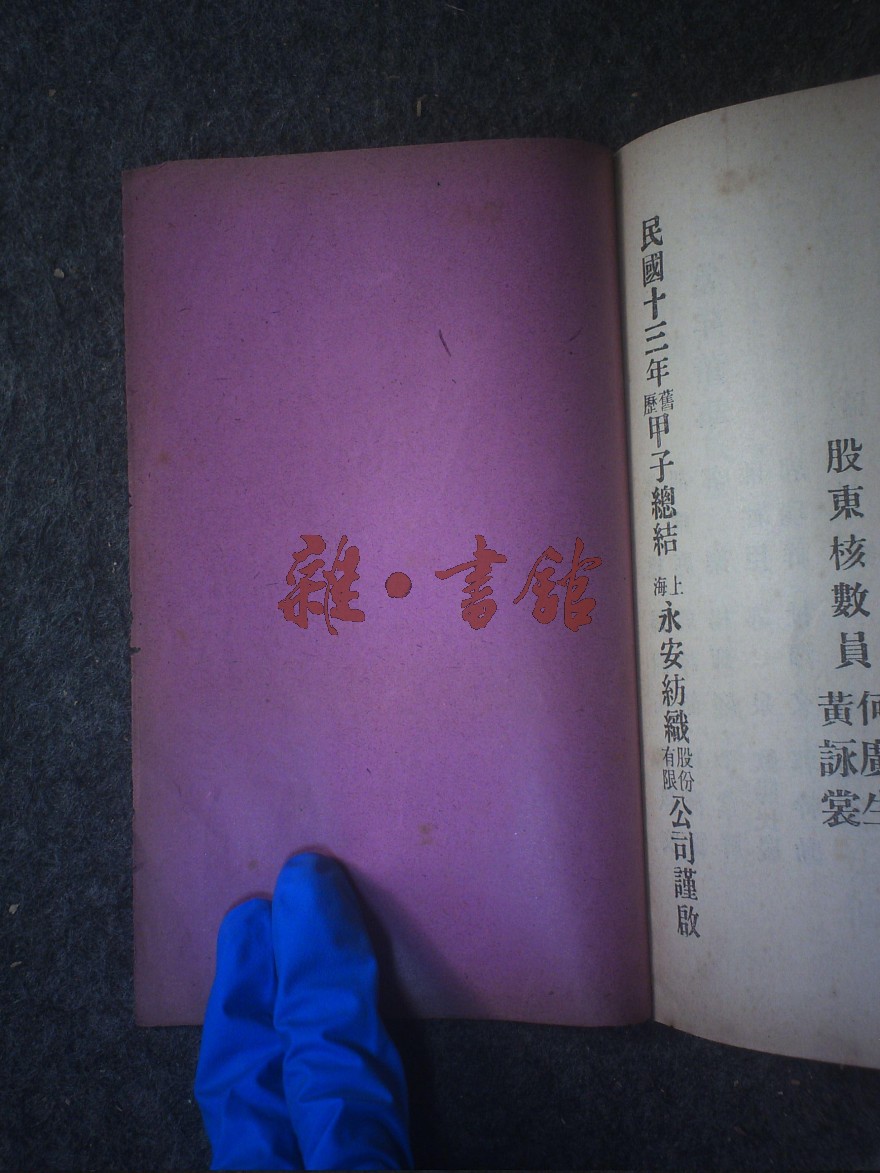 股東核數員
何廣生
黃詠裳
民國十三年舊歷甲子總結 上海永安紡織股份有限公司謹啟
雜·書館